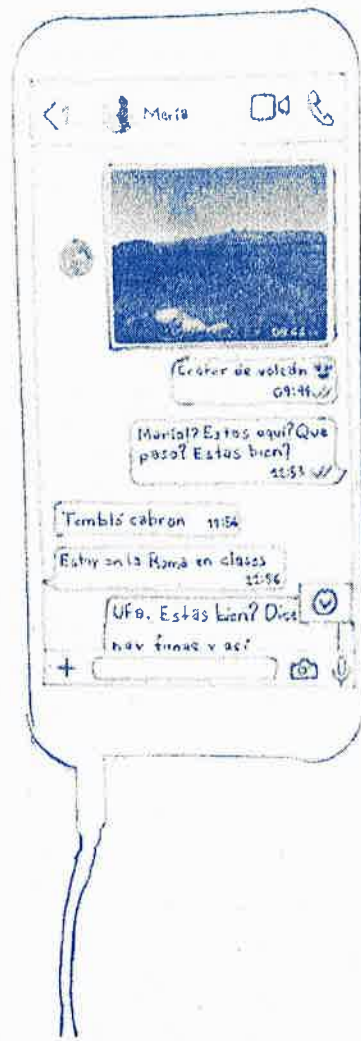 <1 María
09:44
Crater de volcán
09:44
María!? Estas aquí? Que
paso? Estas bien?
11:53
Tembló cabron 11:56
Estoy en la Roma en clases
11:56
Ufa. Estás bien? Dice
hay y así
+